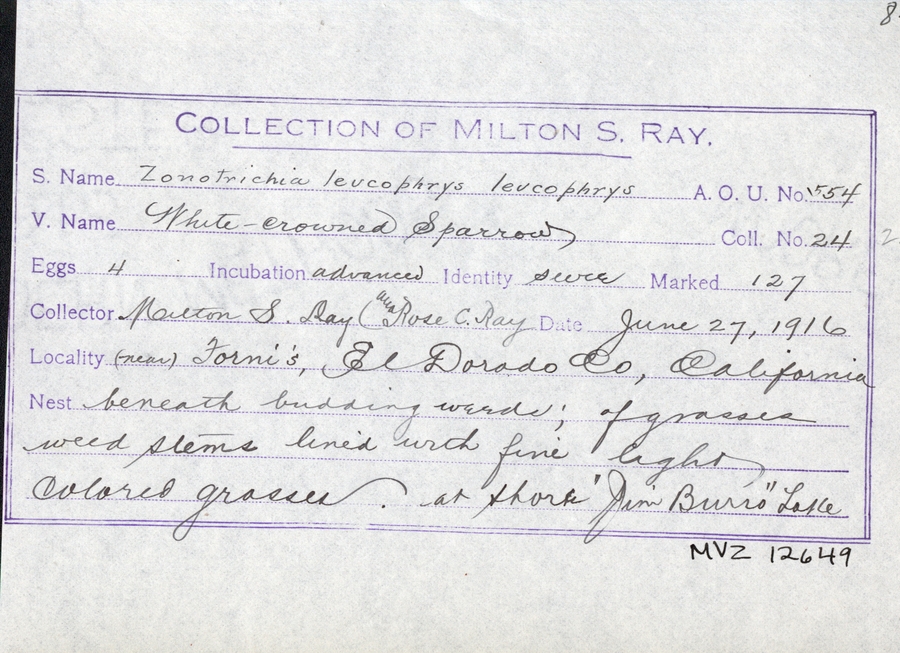 8
COLLECTION OF MILTON S. RAY.
S. Name Zonotrichia leucophrys leucophrys A. O. U. No. 554
V. Name White-crowned Sparrow Coll. No. 24 2
Eggs 4 Incubation advanced Identity sure Marked 127
Collector Milton S. Ray (and Rose C. Ray Date June 27, 1916
Locality (near) Forni's, El Dorado Co, California
Nest beneath budding weeds; of grasses
weed stems lined with fine light
colored grasses. at shore "Jim Burro" Lake
MVZ 12649